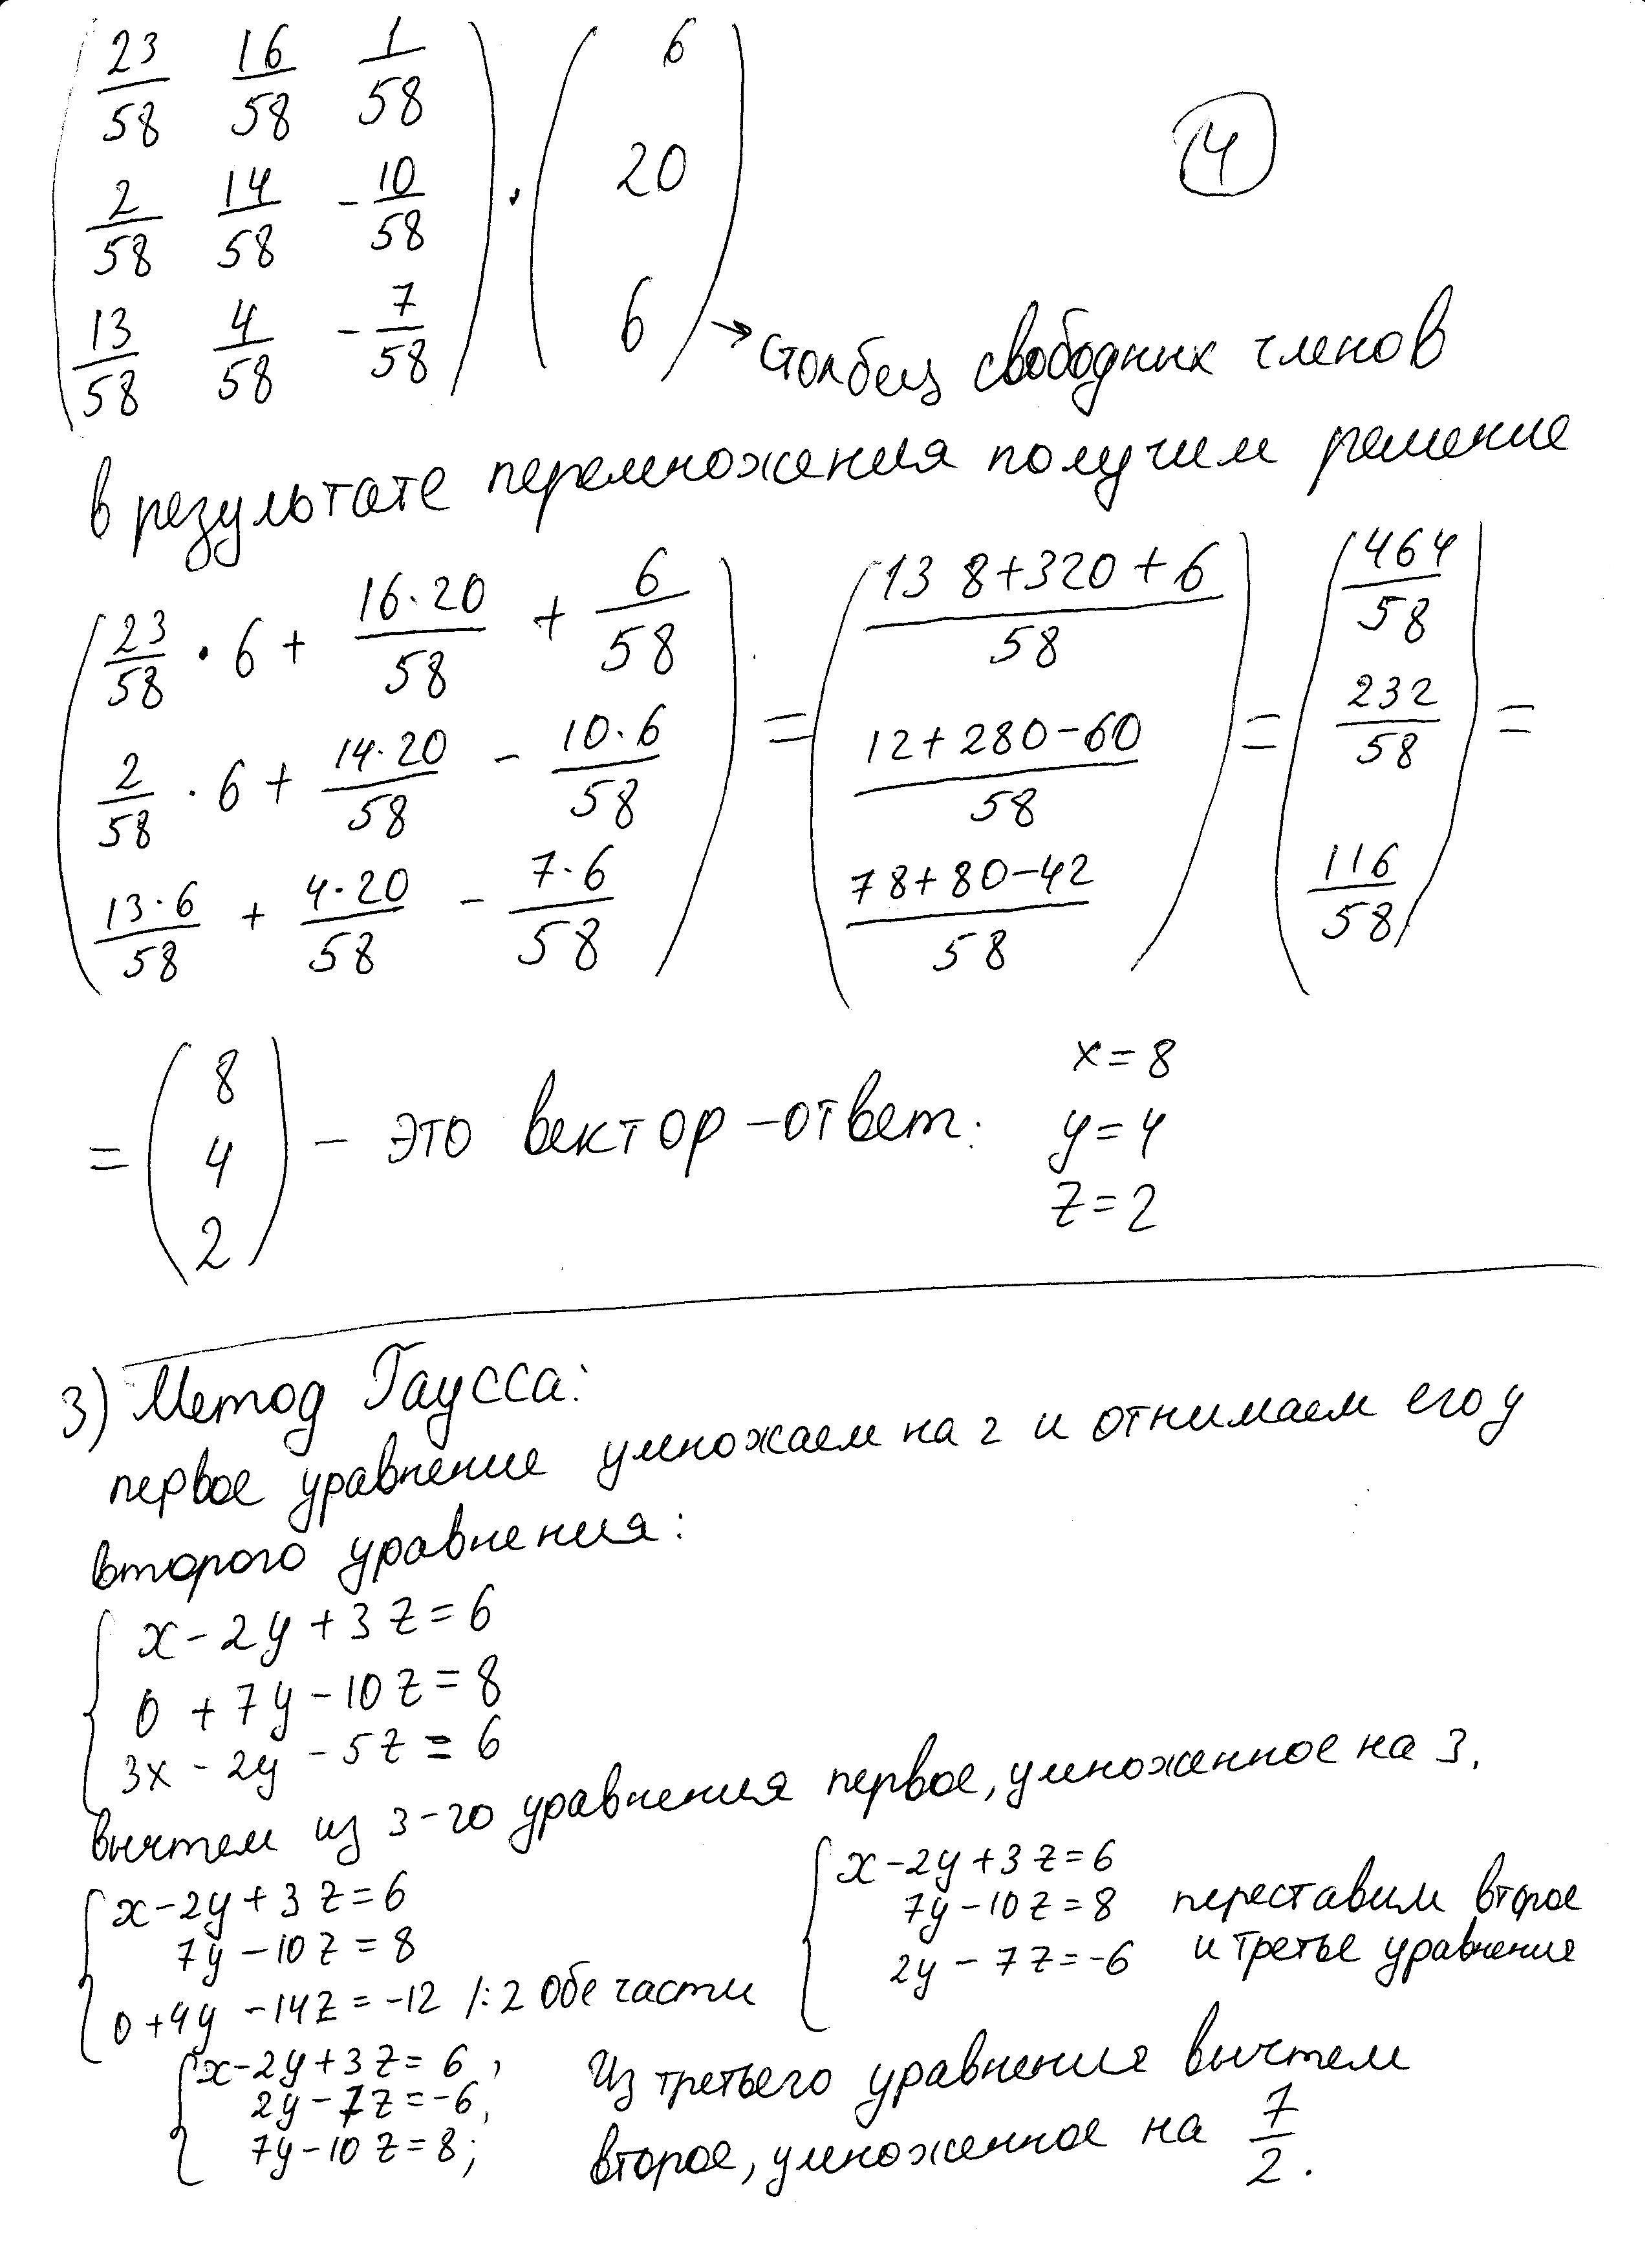 23/58 16/58 1/58 6
④
2/58 14/58 -10/58 · 20
13/58 4/58 -7/58 6 → столбец свободных членов
в результате перемножения получим решение
23/58 · 6 + 16·20/58 + 6/58 = 138+320+6/58 = 464/58 =
2/58 · 6 + 14·20/58 - 10·6/58 12+280-60/58 232/58
13·6/58 + 4·20/58 - 7·6/58 78+80-42/58 116/58
= (8 4 2) - это вектор-ответ: x=8
y=4
z=2
3) Метод Гаусса:
первое уравнение умножаем на 2 и отнимаем его у
второго уравнения:
x-2y+3z=6
0+7y-10z=8
3x-2y-5z=6
вычтем из 3-го уравнения первое, умноженное на 3.
x-2y+3z=6
7y-10z=8
0+4y-14z=-12 /:2 Обе части
x-2y+3z=6
7y-10z=8 переставим второе
2y-7z=-6 и третье уравнение
x-2y+3z=6,
2y-7z=-6,
7y-10z=8;
Из третьего уравнения вычтем
второе, умноженное на 7/2.